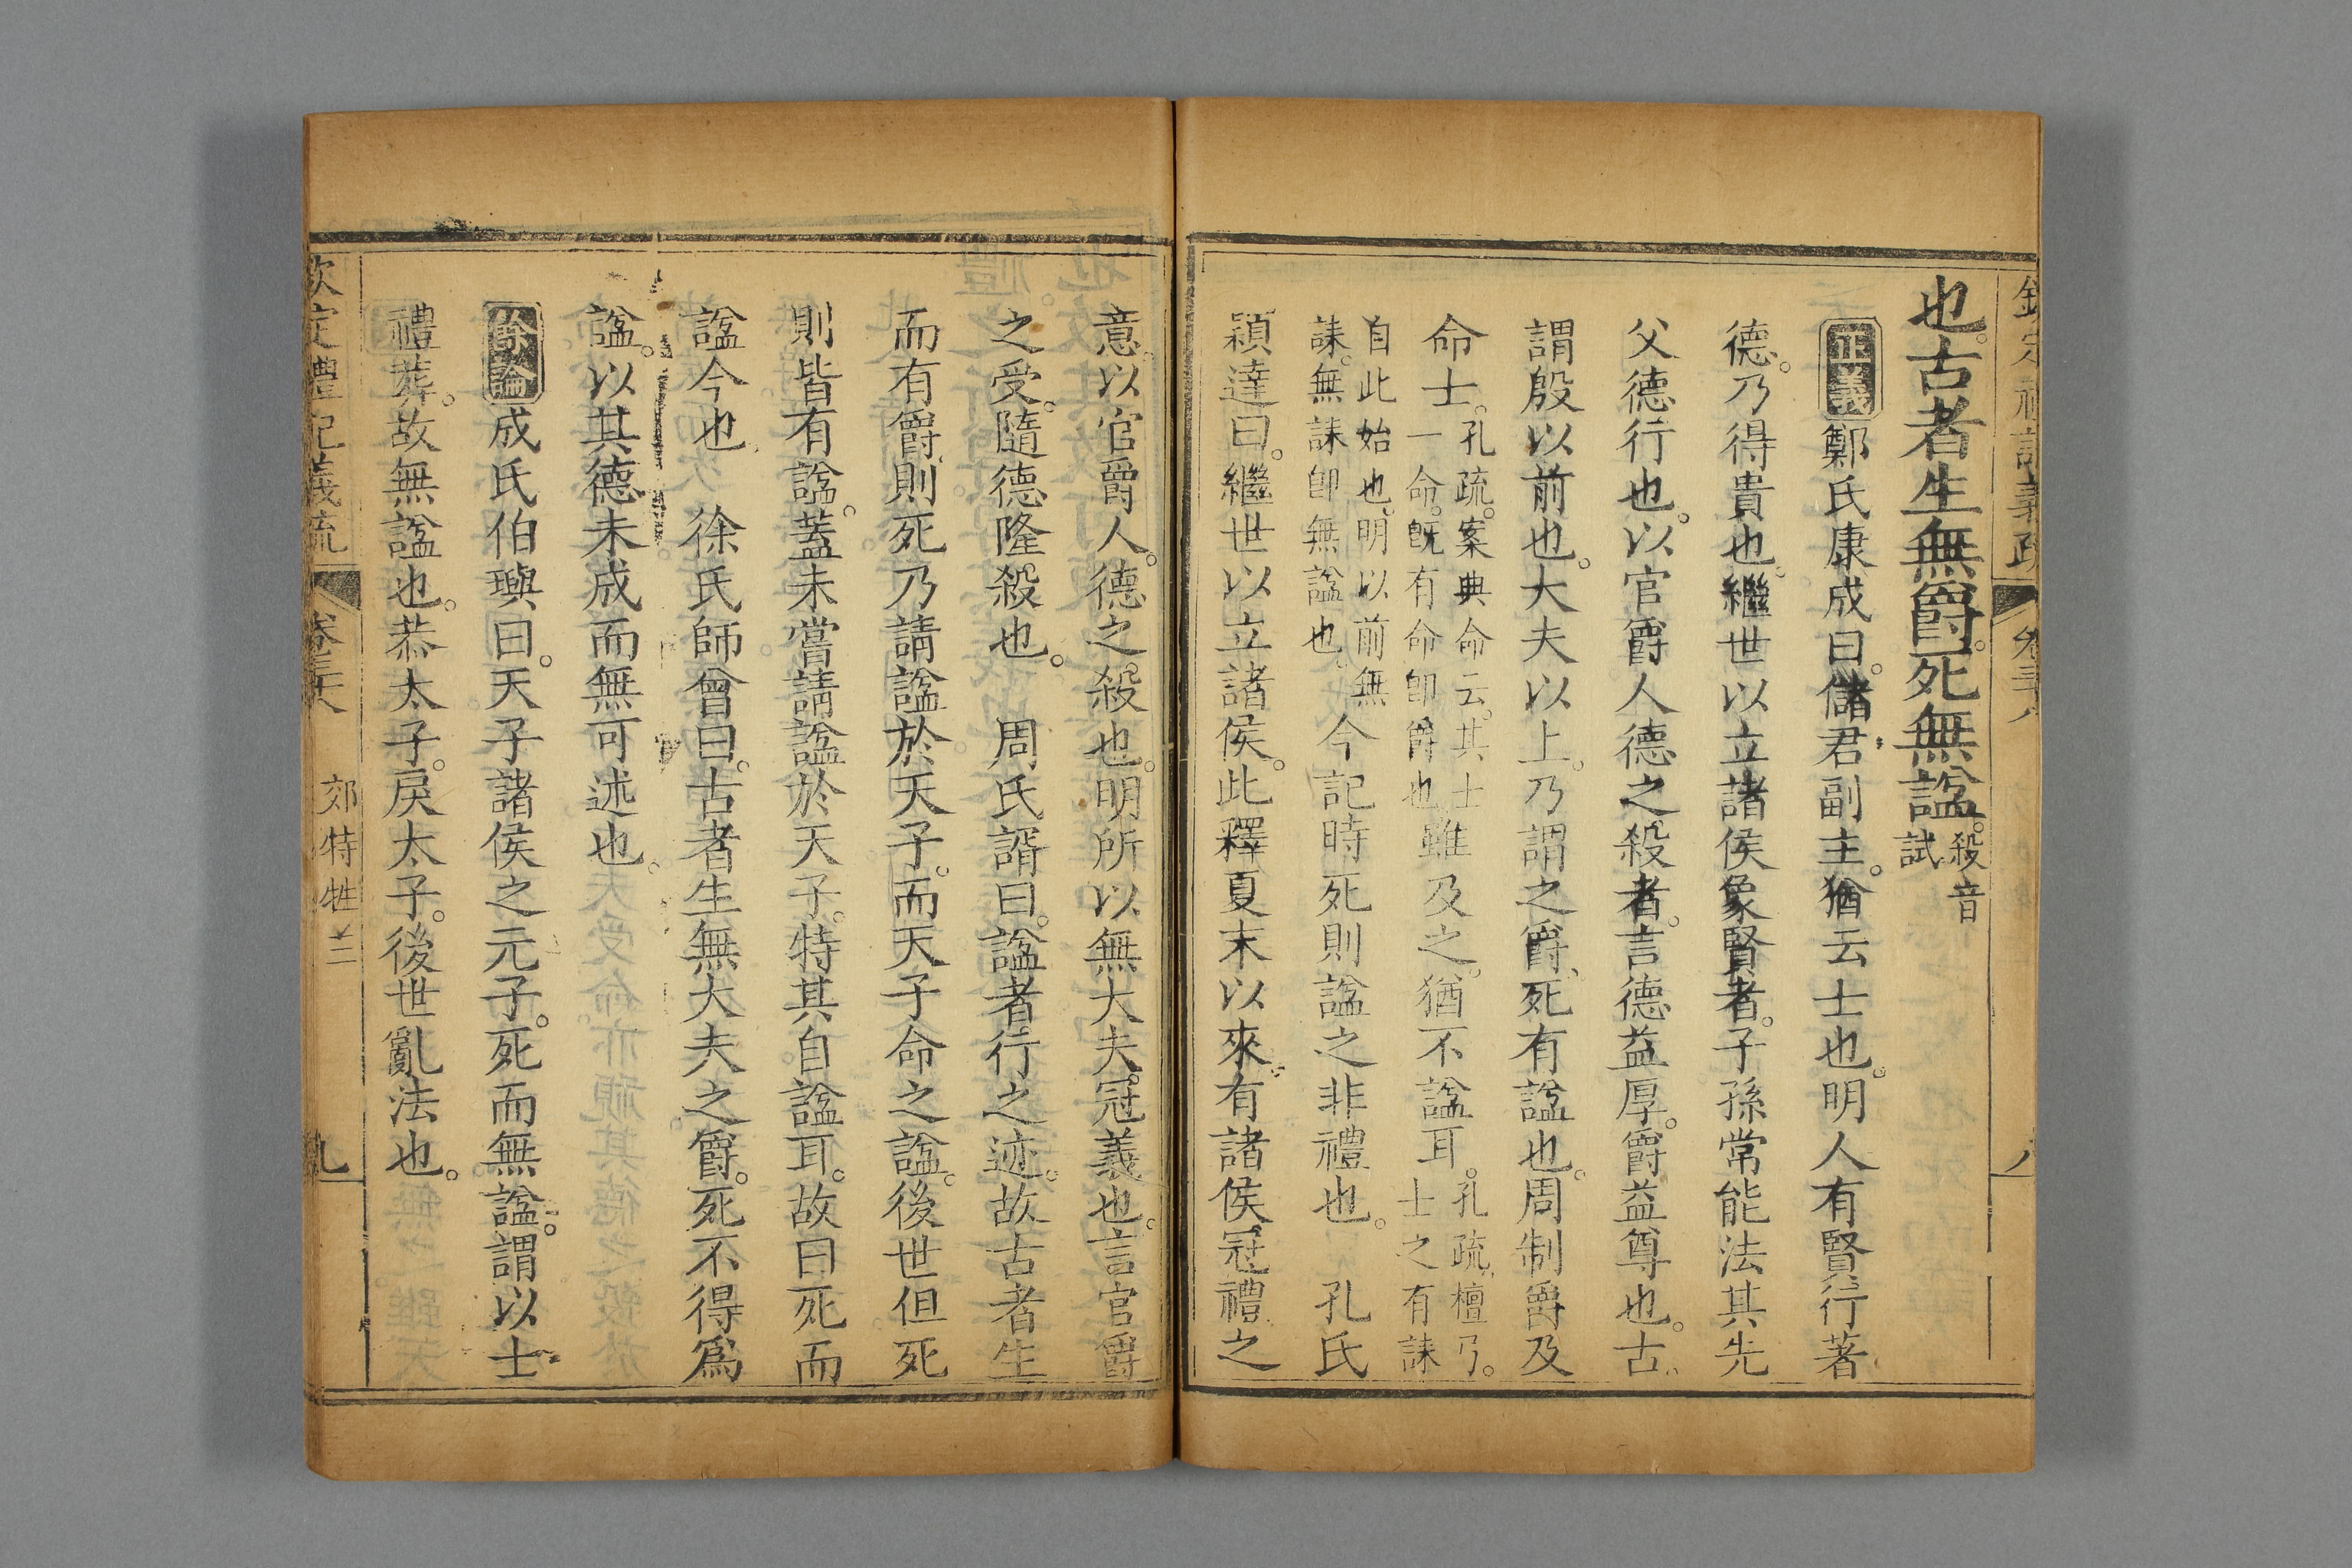 欽定禮記義疏 卷三十八 八
也。古者生無爵。死無諡。殺音試
正義 鄭氏康成曰。儲君副主。猶云士也。明人有賢行著
德。乃得貴也。繼世以立諸侯象賢者。子孫常能法其先
父德行也。以官爵人德之殺者。言德益厚。爵益尊也。古
謂殷以前也。大夫以上。乃謂之爵、死有諡也。周制爵及
命士。孔疏。案典命云。其士一命。旣有命卽爵也 雖及之。猶不諡耳。孔疏、檀弓。士之有誄
自此始也。明以前無誄。無誄卽無諡也。 今記時死則諡之非禮也。 孔氏
穎達曰。繼世以立諸侯。此釋夏末以來。有諸侯冠禮之
意。以官爵人。德之殺也。明所以無大夫冠義也。言官爵
之受。隨德隆殺也。 周氏諝曰。諡者行之迹。故古者生
而有爵、則死乃請諡於天子。而天子命之諡。後世但死
則皆有諡。蓋未嘗請諡於天子。特其自諡耳。故曰死而
諡今也、 徐氏師曾曰。古者生無大夫之爵。死不得爲
諡。以其德未成而無可述也。
餘論 成氏伯璵曰。天子諸侯之元子。死而無諡。謂以士
禮葬。故無諡也。恭太子。戾太子。後世亂法也。
欽定禮記義疏 卷三十八 郊特牲二 九